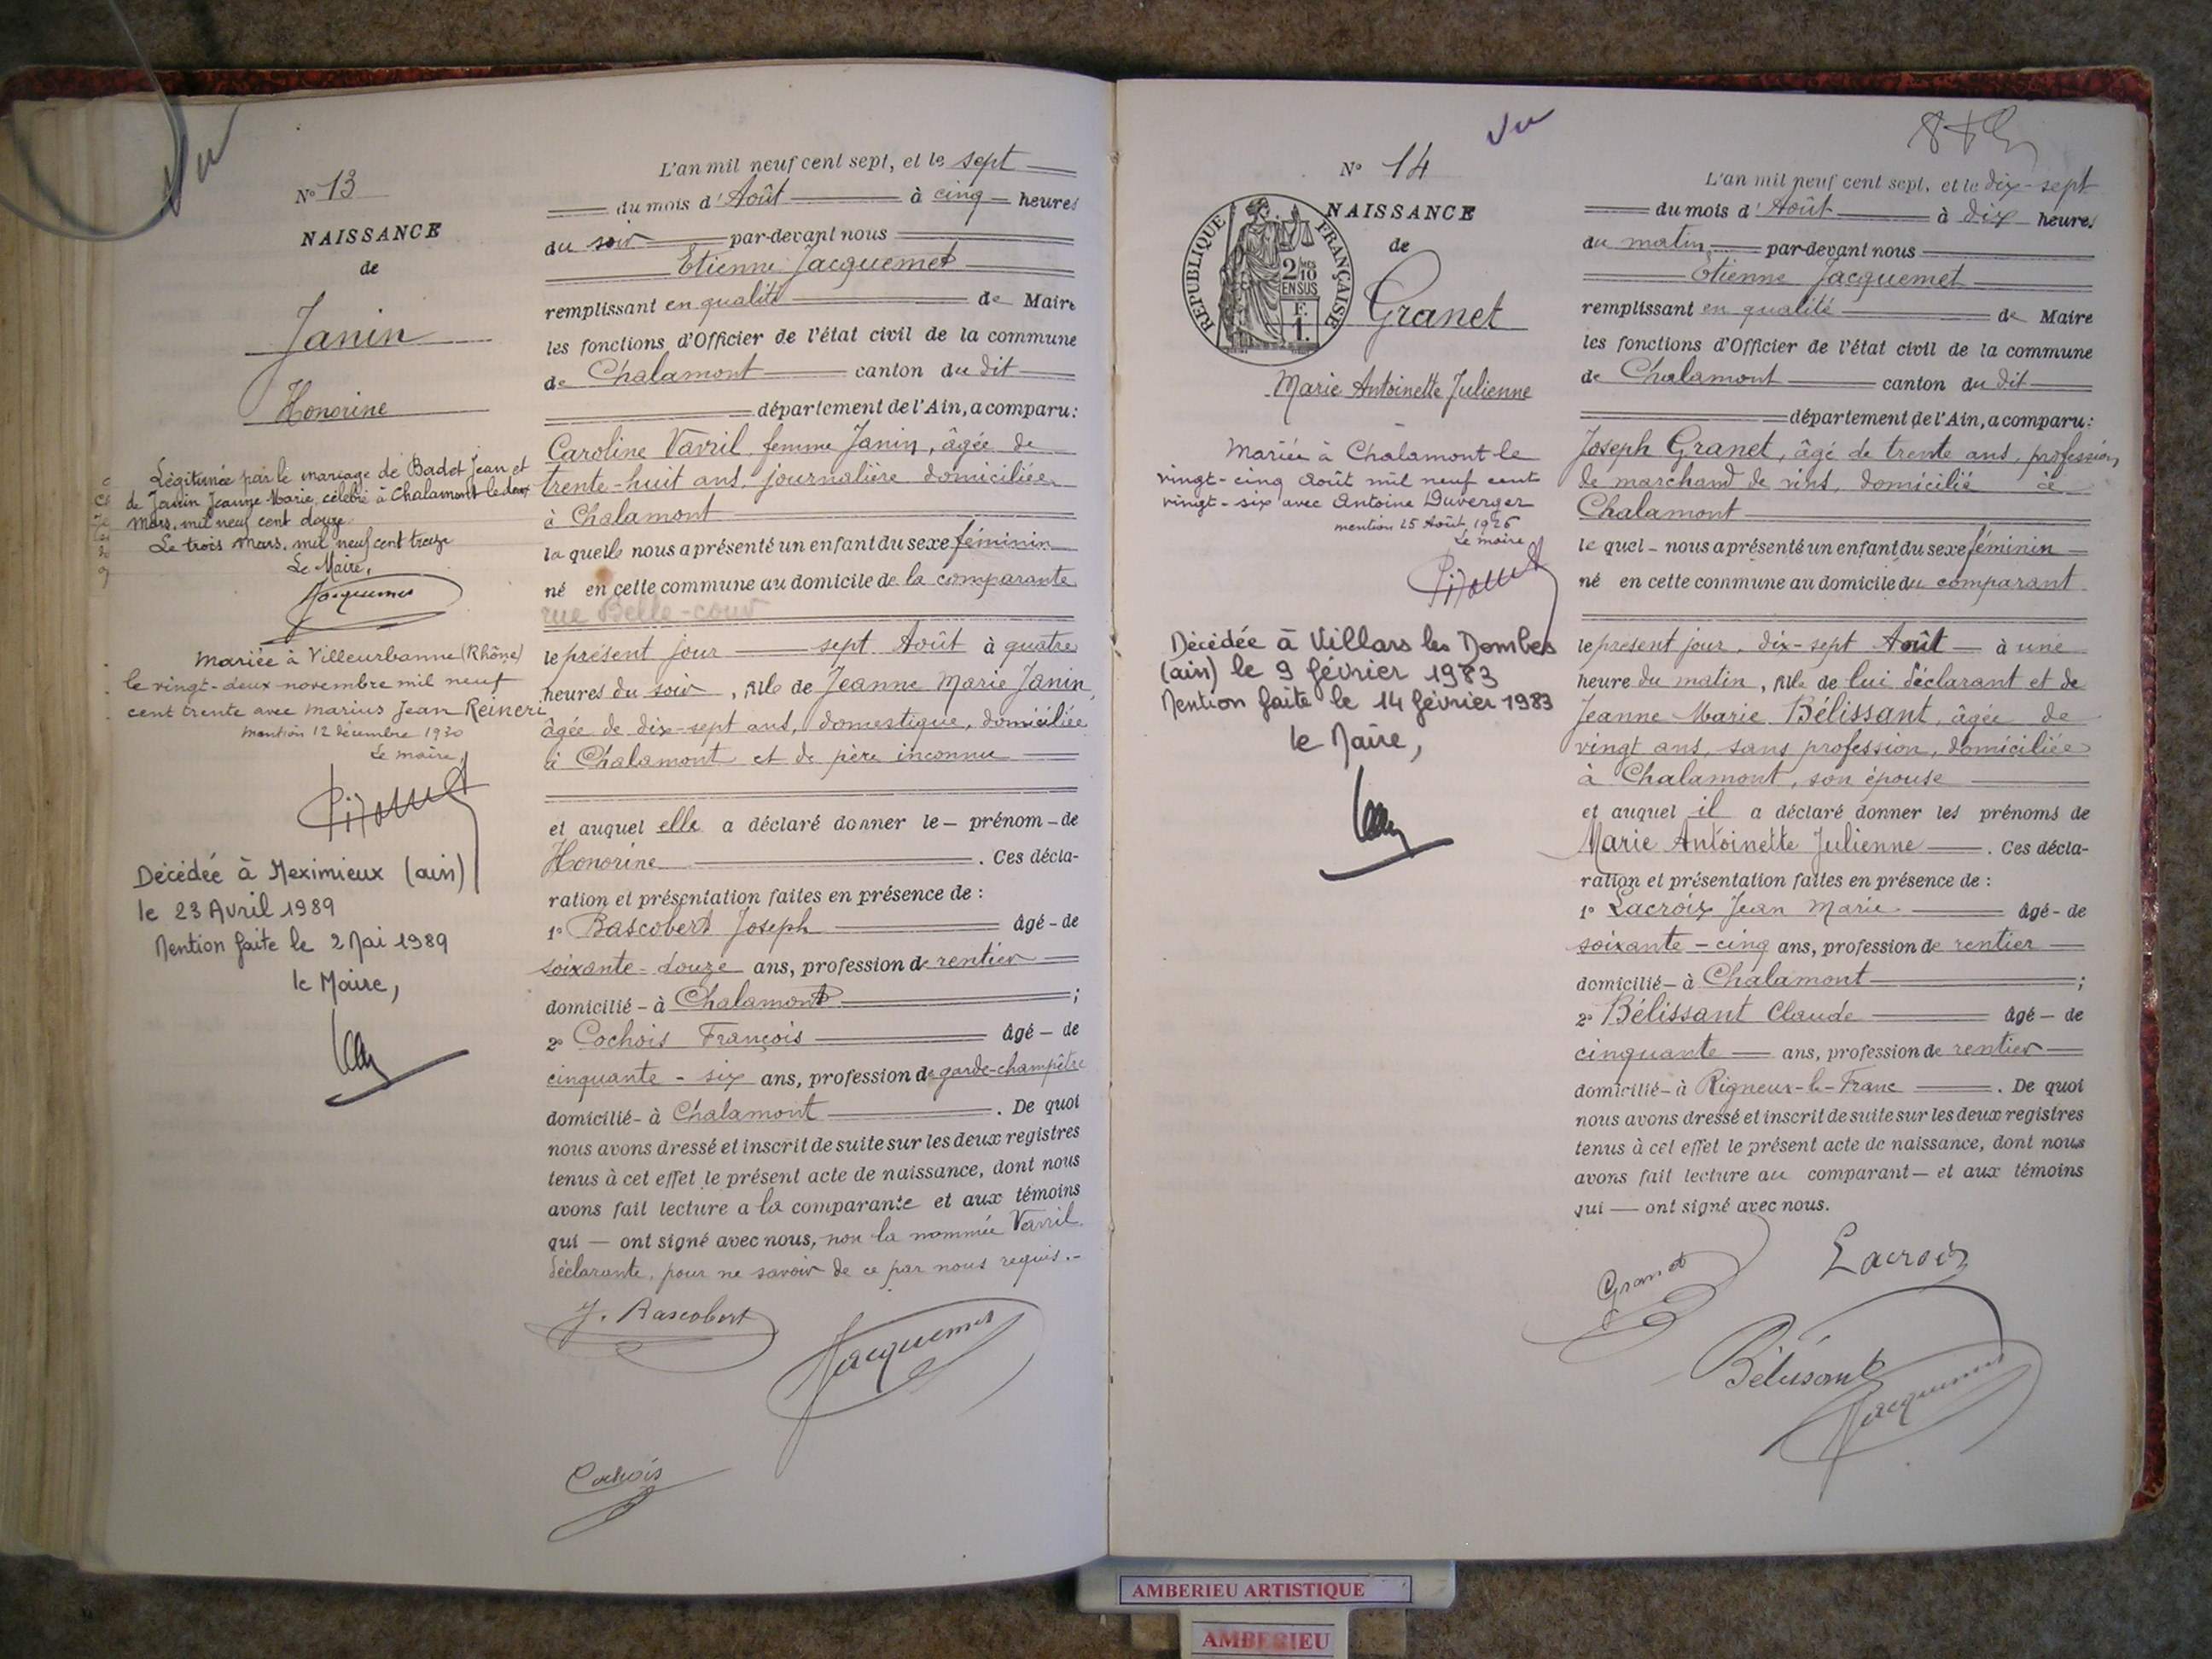 Vu
N° 13
NAISSANCE
de
Janin
Honorine
Légitimée par le mariage de Badet Jean et
de Janin Jeanne Marie, célébré à Chalamont le deux
Mars, mil neuf cent douze
Le trois Mars, mil neuf cent treize
Le Maire,
Jacquemet
Mariée à Villeurbanne (Rhône)
le vingt-deux novembre mil neuf
cent trente avec Marius Jean Reineri
mention 12 décembre 1930
Le maire,
Décédée à Meximieux (ain)
le 23 Avril 1989
Mention faite le 2 Mai 1989
le Maire,
L'an mil neuf cent sept, et le sept
du mois d'Août à cinq heures
du soir par-devant nous
Etienne Jacquemet
remplissant en qualité de Maire
les fonctions d'Officier de l'état civil de la commune
de Chalamont canton du dit
département de l'Ain, a comparu:
Caroline Vavril femme Janin, âgée de
trente-huit ans, journalière domiciliée
à Chalamont
la quelle nous a présenté un enfant du sexe féminin
né en cette commune au domicile de la comparante
rue Belle-cour
le présent jour sept Août à quatre
heures du soir, fille de Jeanne Marie Janin,
âgée de dix-sept ans, domestique, domiciliée
à Chalamont et de père inconnu
et auquel elle a déclaré donner le prénom de
Honorine. Ces décla-
ration et présentation faites en présence de :
1° Bascobert Joseph âgé de
soixante-douze ans, profession de rentier
domicilié à Chalamont ;
2° Cochois François âgé de
cinquante-six ans, profession de garde-champêtre
domicilié à Chalamont. De quoi
nous avons dressé et inscrit de suite sur les deux registres
tenus à cet effet le présent acte de naissance, dont nous
avons fait lecture a la comparante et aux témoins
qui — ont signé avec nous, non la nommée Vavril
déclarante, pour ne savoir de ce par nous requis.-
J. Bascobert
Jacquemet
Cochois
Vu
N° 14
REPUBLIQUE FRANÇAISE
2/10 MES
EN SUS
F.
1.
NAISSANCE
de
Granet
Marie Antoinette Julienne
Mariée à Chalamont le
vingt-cinq Août mil neuf cent
vingt-six avec Antoine Duverger
mention 25 Août 1926
Le maire
Décédée à Villars les Dombes
(ain) le 9 février 1983
Mention faite le 14 février 1983
le Maire,
L'an mil neuf cent sept, et le dix-sept
du mois d'Août à dix heures
du matin par-devant nous
Etienne Jacquemet
remplissant en qualité de Maire
les fonctions d'Officier de l'état civil de la commune
de Chalamont canton du dit
département de l'Ain, a comparu:
Joseph Granet, âgé de trente ans, profession
de marchand de vins, domicilié à
Chalamont
le quel nous a présenté un enfant du sexe féminin
né en cette commune au domicile du comparant
le présent jour, dix-sept Août à une
heure du matin, fille de lui déclarant et de
Jeanne Marie Bélissant, âgée de
vingt ans, sans profession, domiciliée
à Chalamont, son épouse
et auquel il a déclaré donner les prénoms de
Marie Antoinette Julienne. Ces décla-
ration et présentation faites en présence de :
1° Lacroix Jean Marie âgé de
soixante-cinq ans, profession de rentier
domicilié à Chalamont ;
2° Bélissant Claude âgé de
cinquante ans, profession de rentier
domicilié à Rigneux-le-Franc. De quoi
nous avons dressé et inscrit de suite sur les deux registres
tenus à cet effet le présent acte de naissance, dont nous
avons fait lecture au comparant et aux témoins
qui — ont signé avec nous.
Granet
Lacroix
Bélissant
Jacquemet
AMBERIEU ARTISTIQUE
AMBERIEU